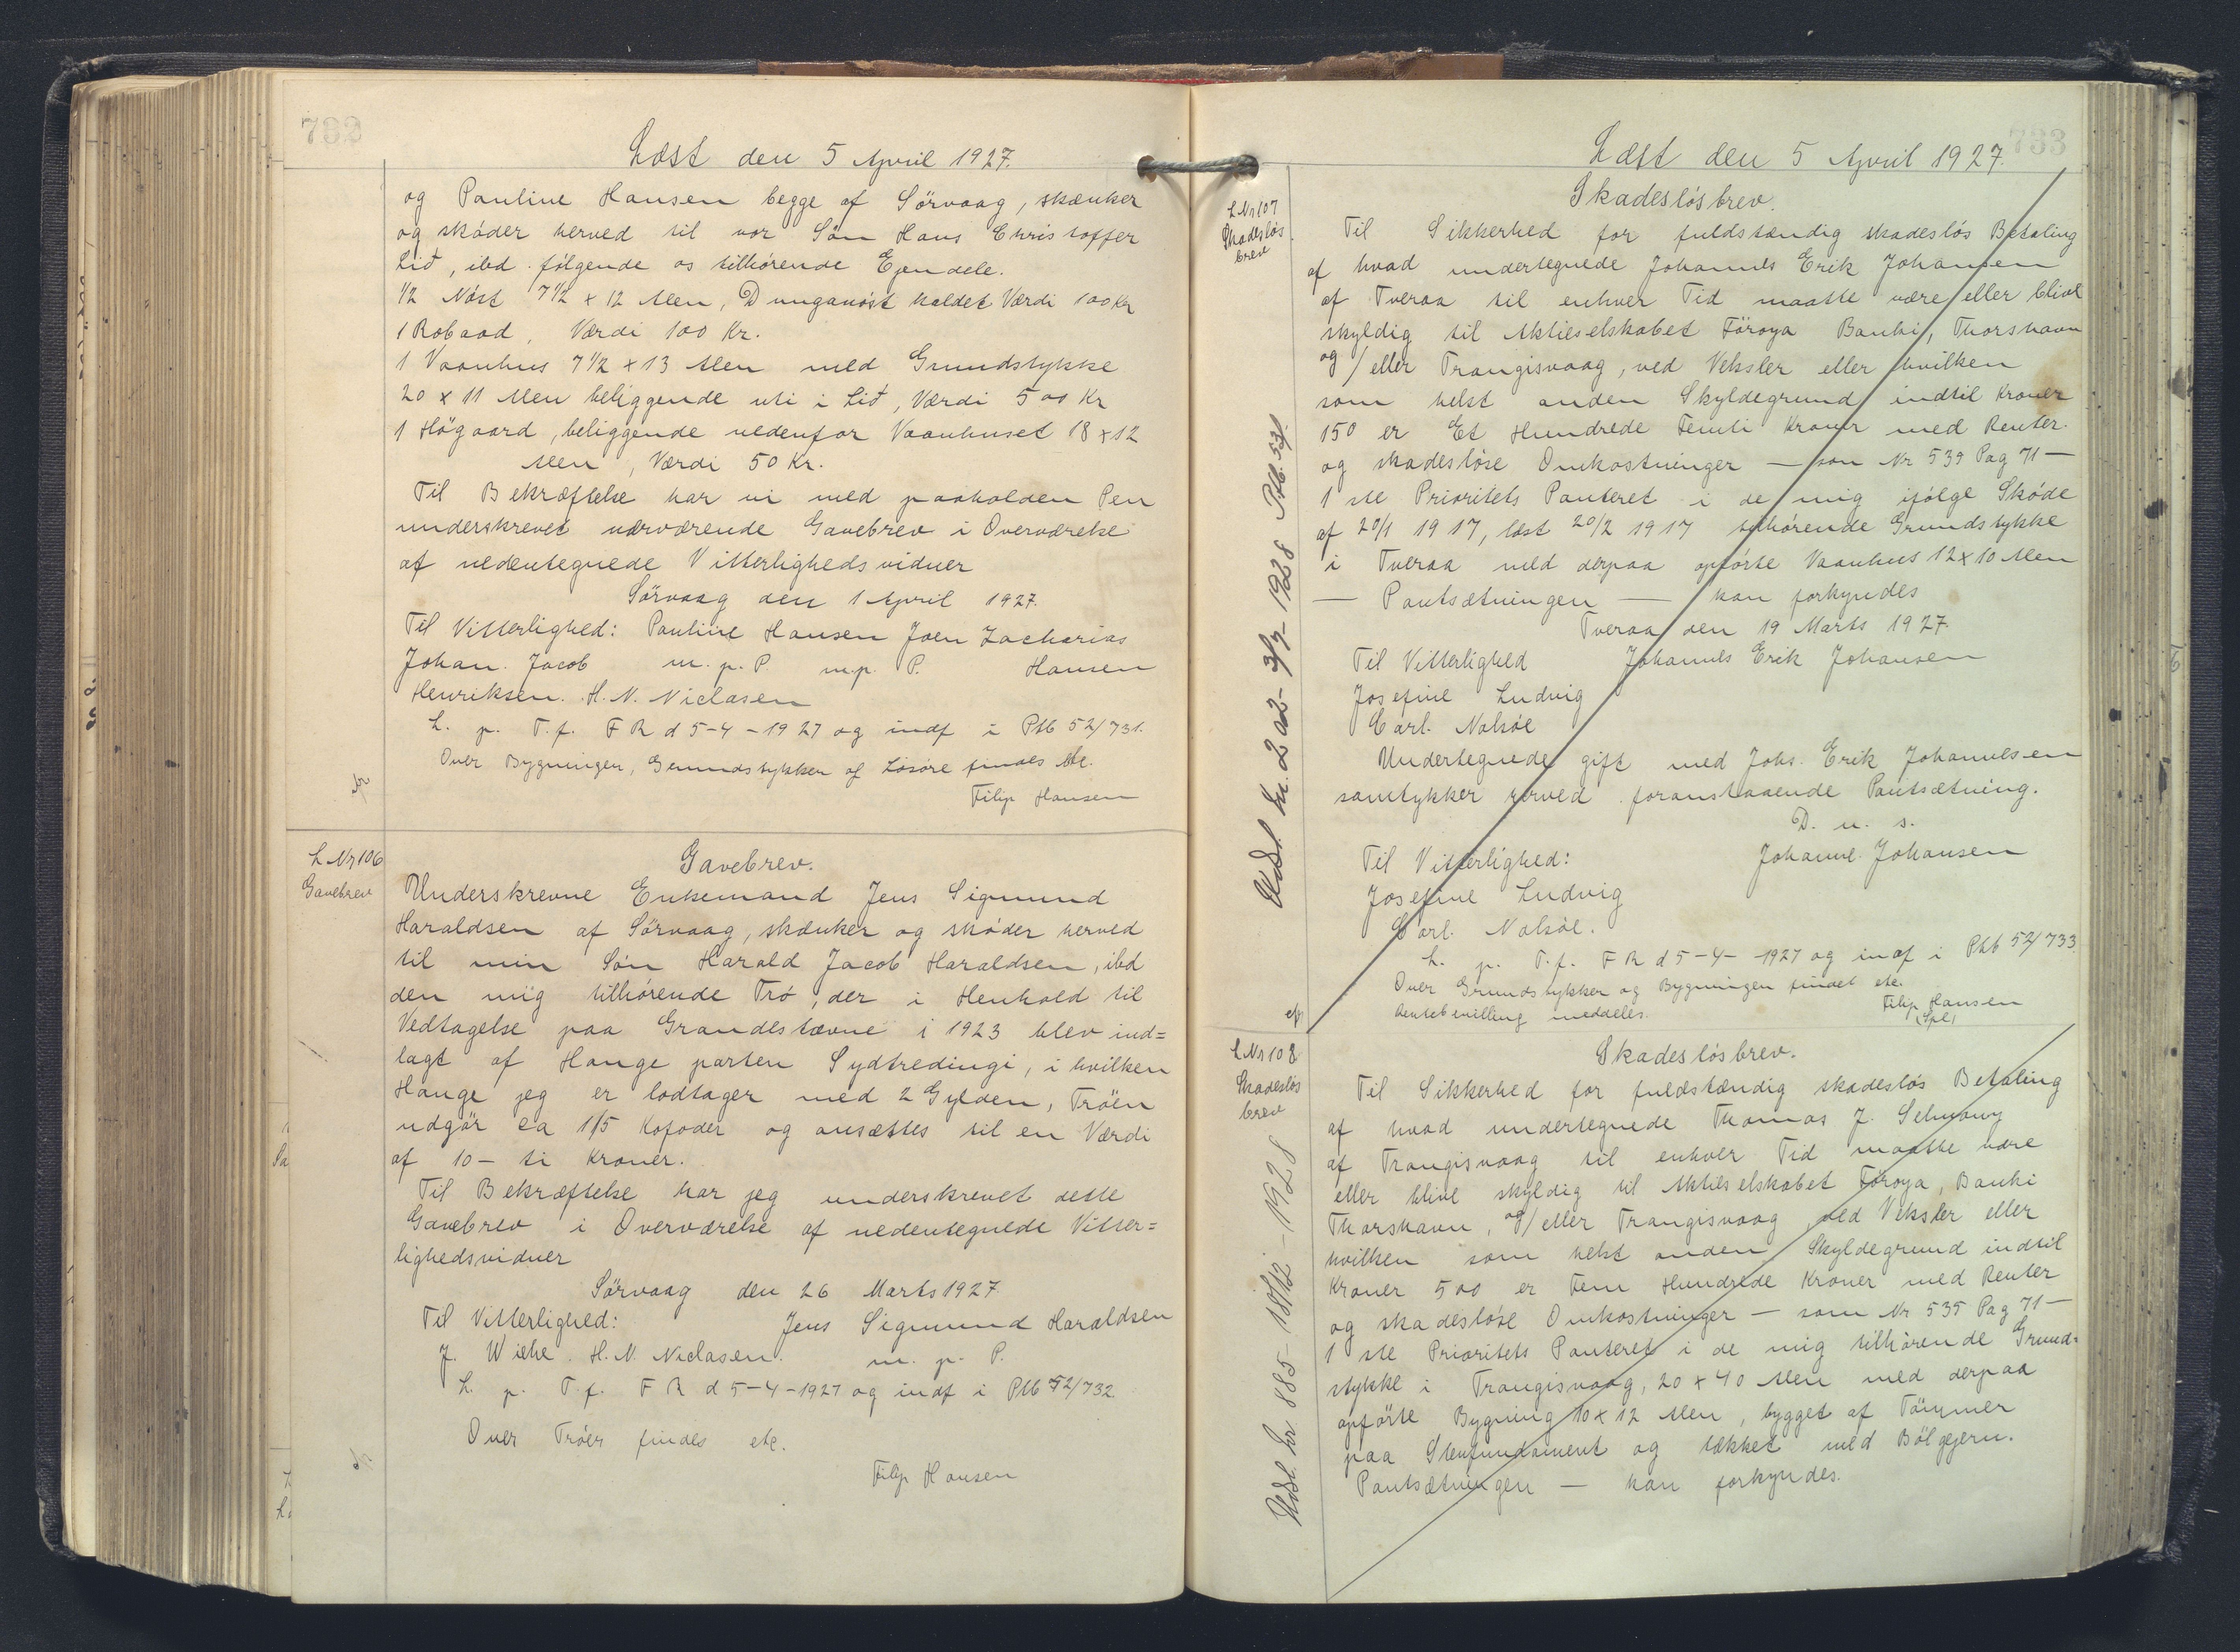 732
Læst den 5 April 1927.
og Pauline Hansen begge af Sörvaag, skænker
og sköder herved til vor Sön Hans Christoffer
Lid, ibd. fölgende os tilhörende Ejendele.
1/2 Nöst 7 1/2 x 12 Alen, Dunganöst kaldet Værdi 100 Kr
1 Robaad, Værdi 100 Kr.
1 Vaanhus 7 1/2 x 13 Alen med Grundstykke
20 x 11 Alen beliggende uti i Lid, Værdi 500 Kr
1 Högaard, beliggende nedenfor Vaanhuset 18 x 12
Alen, Værdi 50 Kr.
Til Bekræftelse har vi med paaholden Pen
underskrevet nærværende Gavebrev i Overværelse
af nedentegnede Vitterlighedsvidner
Sörvaag den 1 April 1927.
Til Vitterlighed: Pauline Hansen Joen Zacharias
Johan. Jacob m. p. P. m.p. P. Hansen
Henriksen. H. N. Niclasen
L. p. T. f. F R d 5-4-1927 og indf i Ptb 52/731.
Over Bygningen, Grundstykker af Lösöre findes etc.
Filip Hansen
L Nr 106
Gavebrev
Gavebrev.
Underskrevne Enkemand Jens Sigmund
Haraldsen af Sörvaag, skænker og sköder herved
til min Sön Harald Jacob Haraldsen, ibd
den mig tilhörende Trö, der i Henhold til
Vedtagelse paa Grandestævne i 1923 blev ind=
lagt af Hauge parten Sydtredingi, i hvilken
Hauge jeg er lodtager med 2 Gylden, Tröen
udgör ca 1/5 Kofoder og ansættes til en Værdi
af 10 - ti Kroner.
Til Bekræftelse har jeg underskrevet dette
Gavebrev i Overværelse af nedentegnede Vitter=
lighedsvidner
Sörvaag den 26 Marts 1927
Til Vitterlighed: Jens Sigmund Haraldsen
J. Wiehe. H. N. Niclasen. m. p. P.
L. p. T. f. F R d 5-4-1927 og indf i Ptb 52/732
Over Tröen findes etc.
Filip Hansen
733
Læst den 5 April 1927.
L Nr 107
Skadeslös
brev
Skadeslösbrev.
Til Sikkerhed for fuldstændig skadeslös Betaling
af hvad undertegnede Johannes Erik Johansen
af Tveraa til enhver Tid maatte være eller blive
skyldig til Aktieselskabet Föroya Banki, Thorshavn
og/eller Trangisvaag, ved Veksler eller hvilken
som helst anden Skyldegrund indtil Kroner
150 er Et Hundrede Femti Kroner med Renter.
og skadeslöse Omkostninger — som Nr 539 Pag 71 —
1 ste Prioritets Panteret i de mig ifölge Sköde
af 20/1 1917, læst 20/2 1917 tilhörende Grundstykke
i Tveraa med derpaa opförte Vaanhus 12 x 10 Alen
— Pantsætningen — kan forkyndes
Tveraa den 19 Marts 1927.
Til Vitterlighed Johannes Erik Johansen
Josefine Ludvig
Carl. Nolsöe
Undertegnede gift med Johs. Erik Johannesen
samtykker herved foranstaaende Pantsætning.
D. u. s.
Til Vitterlighed: Johanne Johansen
Josefine Ludvig
Carl. Nolsöe.
L. p. T. f. F R d 5-4-1927 og indf i Ptb 52/733.
Over Grundstykker og Bygningen findes etc.
Filip Hansen
meddeles.
Udsl. Nr. 202- 3/7-1928 Ptb. 53/.
L Nr 108
Skadeslös
brev
Skadeslösbrev.
Til Sikkerhed for fuldstændig skadeslös Betaling
af hvad undertegnede Thomas J.
af Trangisvaag til enhver Tid maatte være
eller blive skyldig til Aktieselskabet Föroya, Banki
Thorshavn, og/eller Trangisvaag ved Veksler eller
hvilken som helst anden Skyldegrund indtil
Kroner 500 er Fem Hundrede Kroner med Renter
og skadeslöse Omkostninger — som Nr 535 Pag 71 —
1 ste Prioritets Panteret i de mig tilhörende Grund=
stykke i Trangisvaag, 20 x 40 Alen med derpaa
opförte Bygning 10 x 12 Alen, bygget af Tömmer
paa Stenfundament og tækket med Bölgejern.
Pantsætningen — kan forkyndes.
Udsl. Nr 885- 18/12-1928